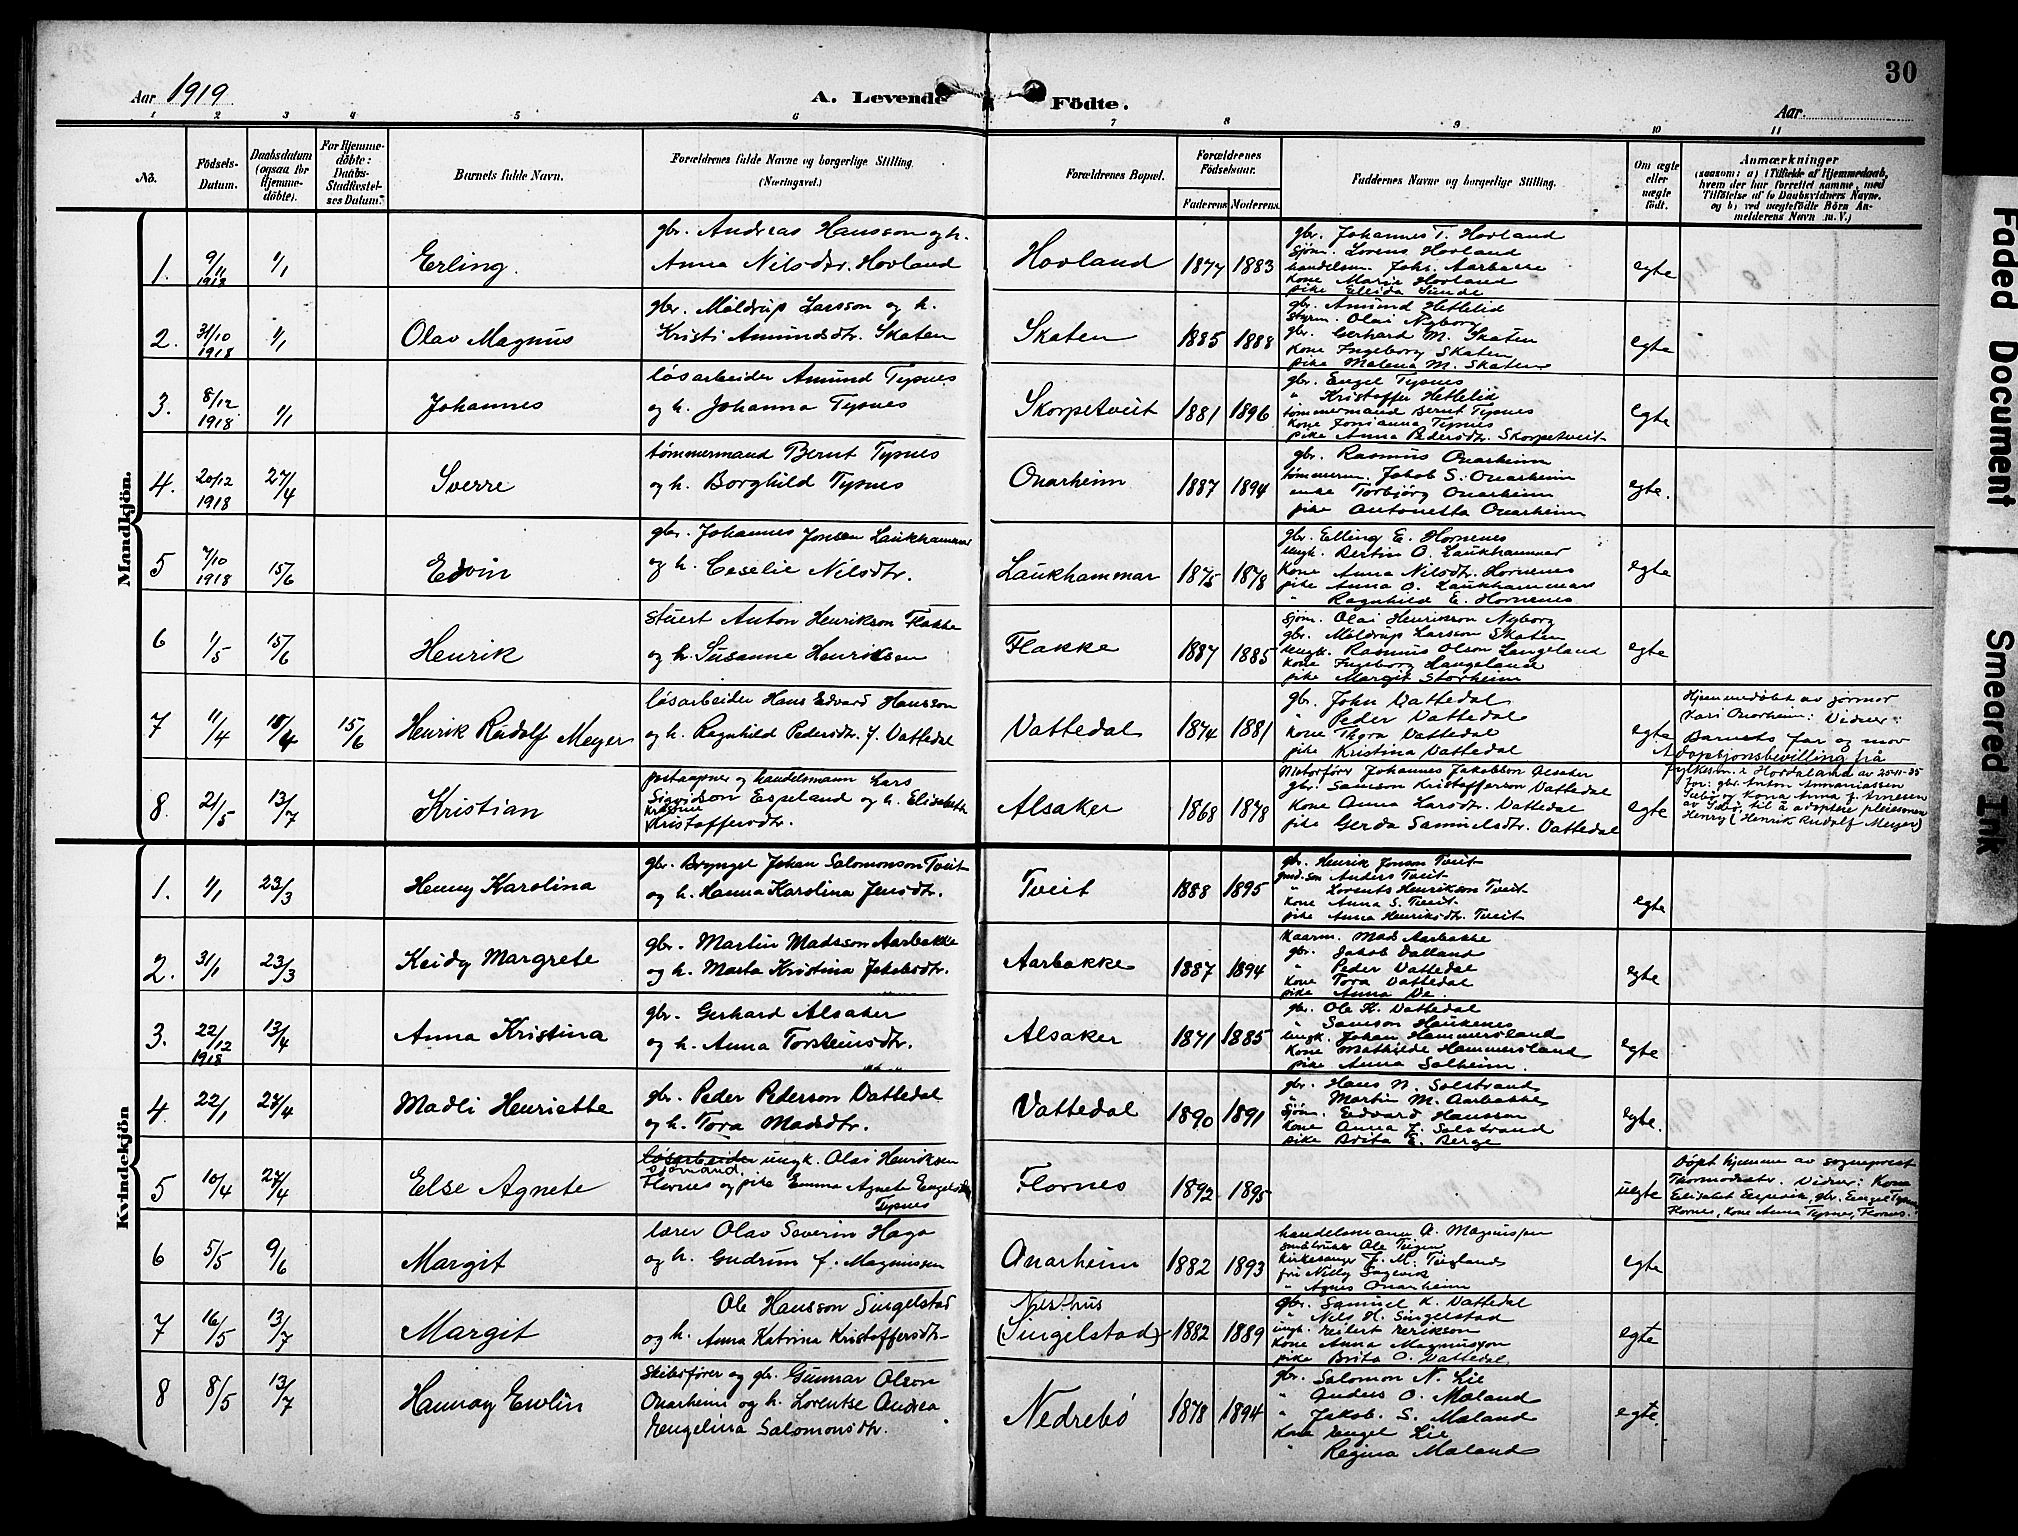 30
Aar 1919
A. Levende Födte.
Aar
1 2 3 4 5 6 7 8 9 10 11
No.
Födsels-Datum.
Daabsdatum (ogsaa for Hjemme-döbte).
For Hjemme-döbte: Daabs-Stadfæstel-ses Datum.
Barnets fulde Navn.
Forældrenes fulde Navne og borgerlige Stilling.
(Næringsvei.)
Forældrenes Bopæl.
Forældrenes Födselsaar.
Faderens Moderens
Faddernes Navne og borgerlige Stilling.
Om ægte eller uægte födt.
Anmærkninger
(saasom: a) i Tilfælde af Hjemmedaab,
hvem der har forrettet samme, med
Tilföielse af to Daabsvidners Navne,
og b) ved uægtefödte Börn An-
melderens Navn m. V.)
Mandkjön.
1. 9/11 1918 1/1 Erling.
gbr. Andreas Hansson og h.
Anna Nilsdtr. Hovland
Hovland 1877 1883
gbr. Johannes T. Hovland
sjøm. Lorens Hovland
handelsm. Johs. Aarbakke
kone Marie Hovland
pike Elida Sunde
egte
2. 31/10 1918 1/1 Olav Magnus
gbr. Möldrup Larsson og h.
Kristi Amundsdtr. Skaten
Skaten 1885 1888
gbr. Amund Hetlelid
styrm. Olai Nyborg
gbr. Gerhard M. Skaten
kone Ingeborg Skaten
pike Malena M. Skaten
egte
3. 8/12 1918 1/1 Johannes
løsarbeider Amund Tysnes
og h. Johanna Tysnes
Skorpetveit 1881 1896
gbr. Engel Tysnes
" Kristoffer Hetlelid
tømmermand Bernt Tysnes
kone Jonianna Tysnes
pike Anna Pedersdtr. Skorpetveit
egte
4. 20/12 1918 27/4 Sverre
tømmermand Bernt Tysnes
og h. Borghild Tysnes
Onarheim 1887 1894
gbr. Rasmus Onarheim
tømmerm. Jakob S. Onarheim
enke Torbjörg Onarheim
pike Antonetta Onarheim
egte.
5 7/10 1918 15/6 Edvin
gbr. Johannes Jonsen Laukhammar
og h. Ceselie Nilsdtr.
Laukhammar 1875 1878
gbr. Elling E. Hornenes
ungk. Bertin O. Laukhammar
kone Anna Nilsdtr. Hornenes
pike Anna O. Laukhammar
" Ragnhild E. Hornenes
egte
6 1/5 15/6 Henrik
stuert Anton Henrikson Flakke
og h. Susanne Henriksen
Flakke 1887 1885
sjøm. Olai Henrikson Nyborg
gbr. Möldrup Larsson Skaten
ungk. Rasmus Olson Langeland
kone Ingeborg Langeland
pike Margit Storheim
egte
7 11/4 18/4 15/6 Henrik Rudolf Meyer
løsarbeider Hans Edvard Hansson
og h. Ragnhild Pedersdtr. f. Vattedal
Vattedal 1874 1881
gbr. John Vattedal
" Peder Vattedal
kone Thora Vattedal
pike Kristina Vattedal
egte
Hjemmedøbt av jormor
Kari Onarheim: Vidner:
Barnets far og mor
Adopsjonsbevilling frå
fylkesm. i Hordaland av 25-11-35
for gbr. Anton Annaniassen
Gebø og kona Anna f. Arnesen
av Gebø til å adoptere pleiesonen
Henry (Henrik Rudolf Meyer)
8. 21/5 13/7 Kristian
postaapner og handelsmann Lars
Sigurdson Espeland og h. Elisabeth
Kristine
Kristoffersdtr.
Alsaker 1868 1878
Motorfører Johannes Jakobson Alsaker
gbr. Samson Kristofferson Vattedal
kone Anna Larsdtr. Vattedal
pike Gerda Samuelsdtr. Vattedal
egte
Kvindekjön
1. 1/1 23/3 Henny Karolina
gbr. Brynjel Johan Salomonson Tveit
og h. Hanna Karolina Jensdtr.
Tveit 1888 1895
gbr. Henrik Jonson Tveit
gmd.son Anders Tveit
" Lorents Henrikson Tveit
kone Anna S. Tveit
pike Anna Henriksdtr. Tveit
egte
2. 31/1 23/3 Keidy Margrete
gbr. Martin Madsson Aarbakke
og h. Marta Kristina Jakobsdtr.
Aarbakke 1887 1894
kaarm. Mad Aarbakke
gbr. Jakob Dalland
" Peder Vattedal
kone Tora Vattedal
pike Anna Ve.
egte
3. 22/12 1918 13/4 Anna Kristina
gbr. Gerhard Alsaker
og h. Anna Torsteinsdtr.
Alsaker 1871 1885
gbr. Ole K. Vattedal
" Samson Haukenes
ungk. Johan Hammersland
kone Mathilde Hammersland
pike Anna Solheim.
egte
4 22/1 27/4 Madli Henriette
gbr. Peder Pederson Vattedal
og h. Tora Madsdtr.
Vattedal 1890 1891
gbr. Hans N. Solstrand
" Martin M. Aarbakke
sjøm. Edvard Hansson
kone Anna J. Solstrand
pike Brita E. Berge
egte.
5 10/4 27/4 Else Agnete
løsarbeider ungk. Olai Henriksen
sjømand.
Flornes og pike Emma Agnete Engelsdtr.
Tysnes
Flornes 1892 1895
uegte
Döpt hjemme av sogneprest
Thormodsæter. Vidner: Kone
Elisabet Espevik, gbr. Engel Tysnes
Flornes, kone Anna Tysnes, Flornes.
6 5/5 9/6 Margit
lærer Olav Severin Haga
og h. Gudrun f. Magnussen
Onarheim 1882 1893
handelsmann A. Magnussen
småbruker Ole Teigen
kirkesanger J. M. Tveisland
frk Nelly Sagevik
" Agnes Onarheim
egte
7 16/5 13/7 Margit
Ole Hansson Singelstad
og h. Anna Katrina Kristoffersdtr.
Nilshus
(Singelstad) 1882 1889
gbr. Samuel K. Vattedal
" Nils H. Singelstad
ungk. Leibert Eerikson
kone Anna Magnusson
pike Brita O. Vattedal.
egte
8 8/5 13/7 Hannay Evelin
Skibsfører og gbr. Gunnar Olson
Onarheim og h. Lorentse Andrea
Engelina Salomonsdtr.
Nedrebö 1878 1894
gbr. Salomon N. Lie
" Anders O. Maland
" Jakob. S. Maland
kone Engel Lie
" Regina Maland
egte.
Faded Document
Smeared Ink